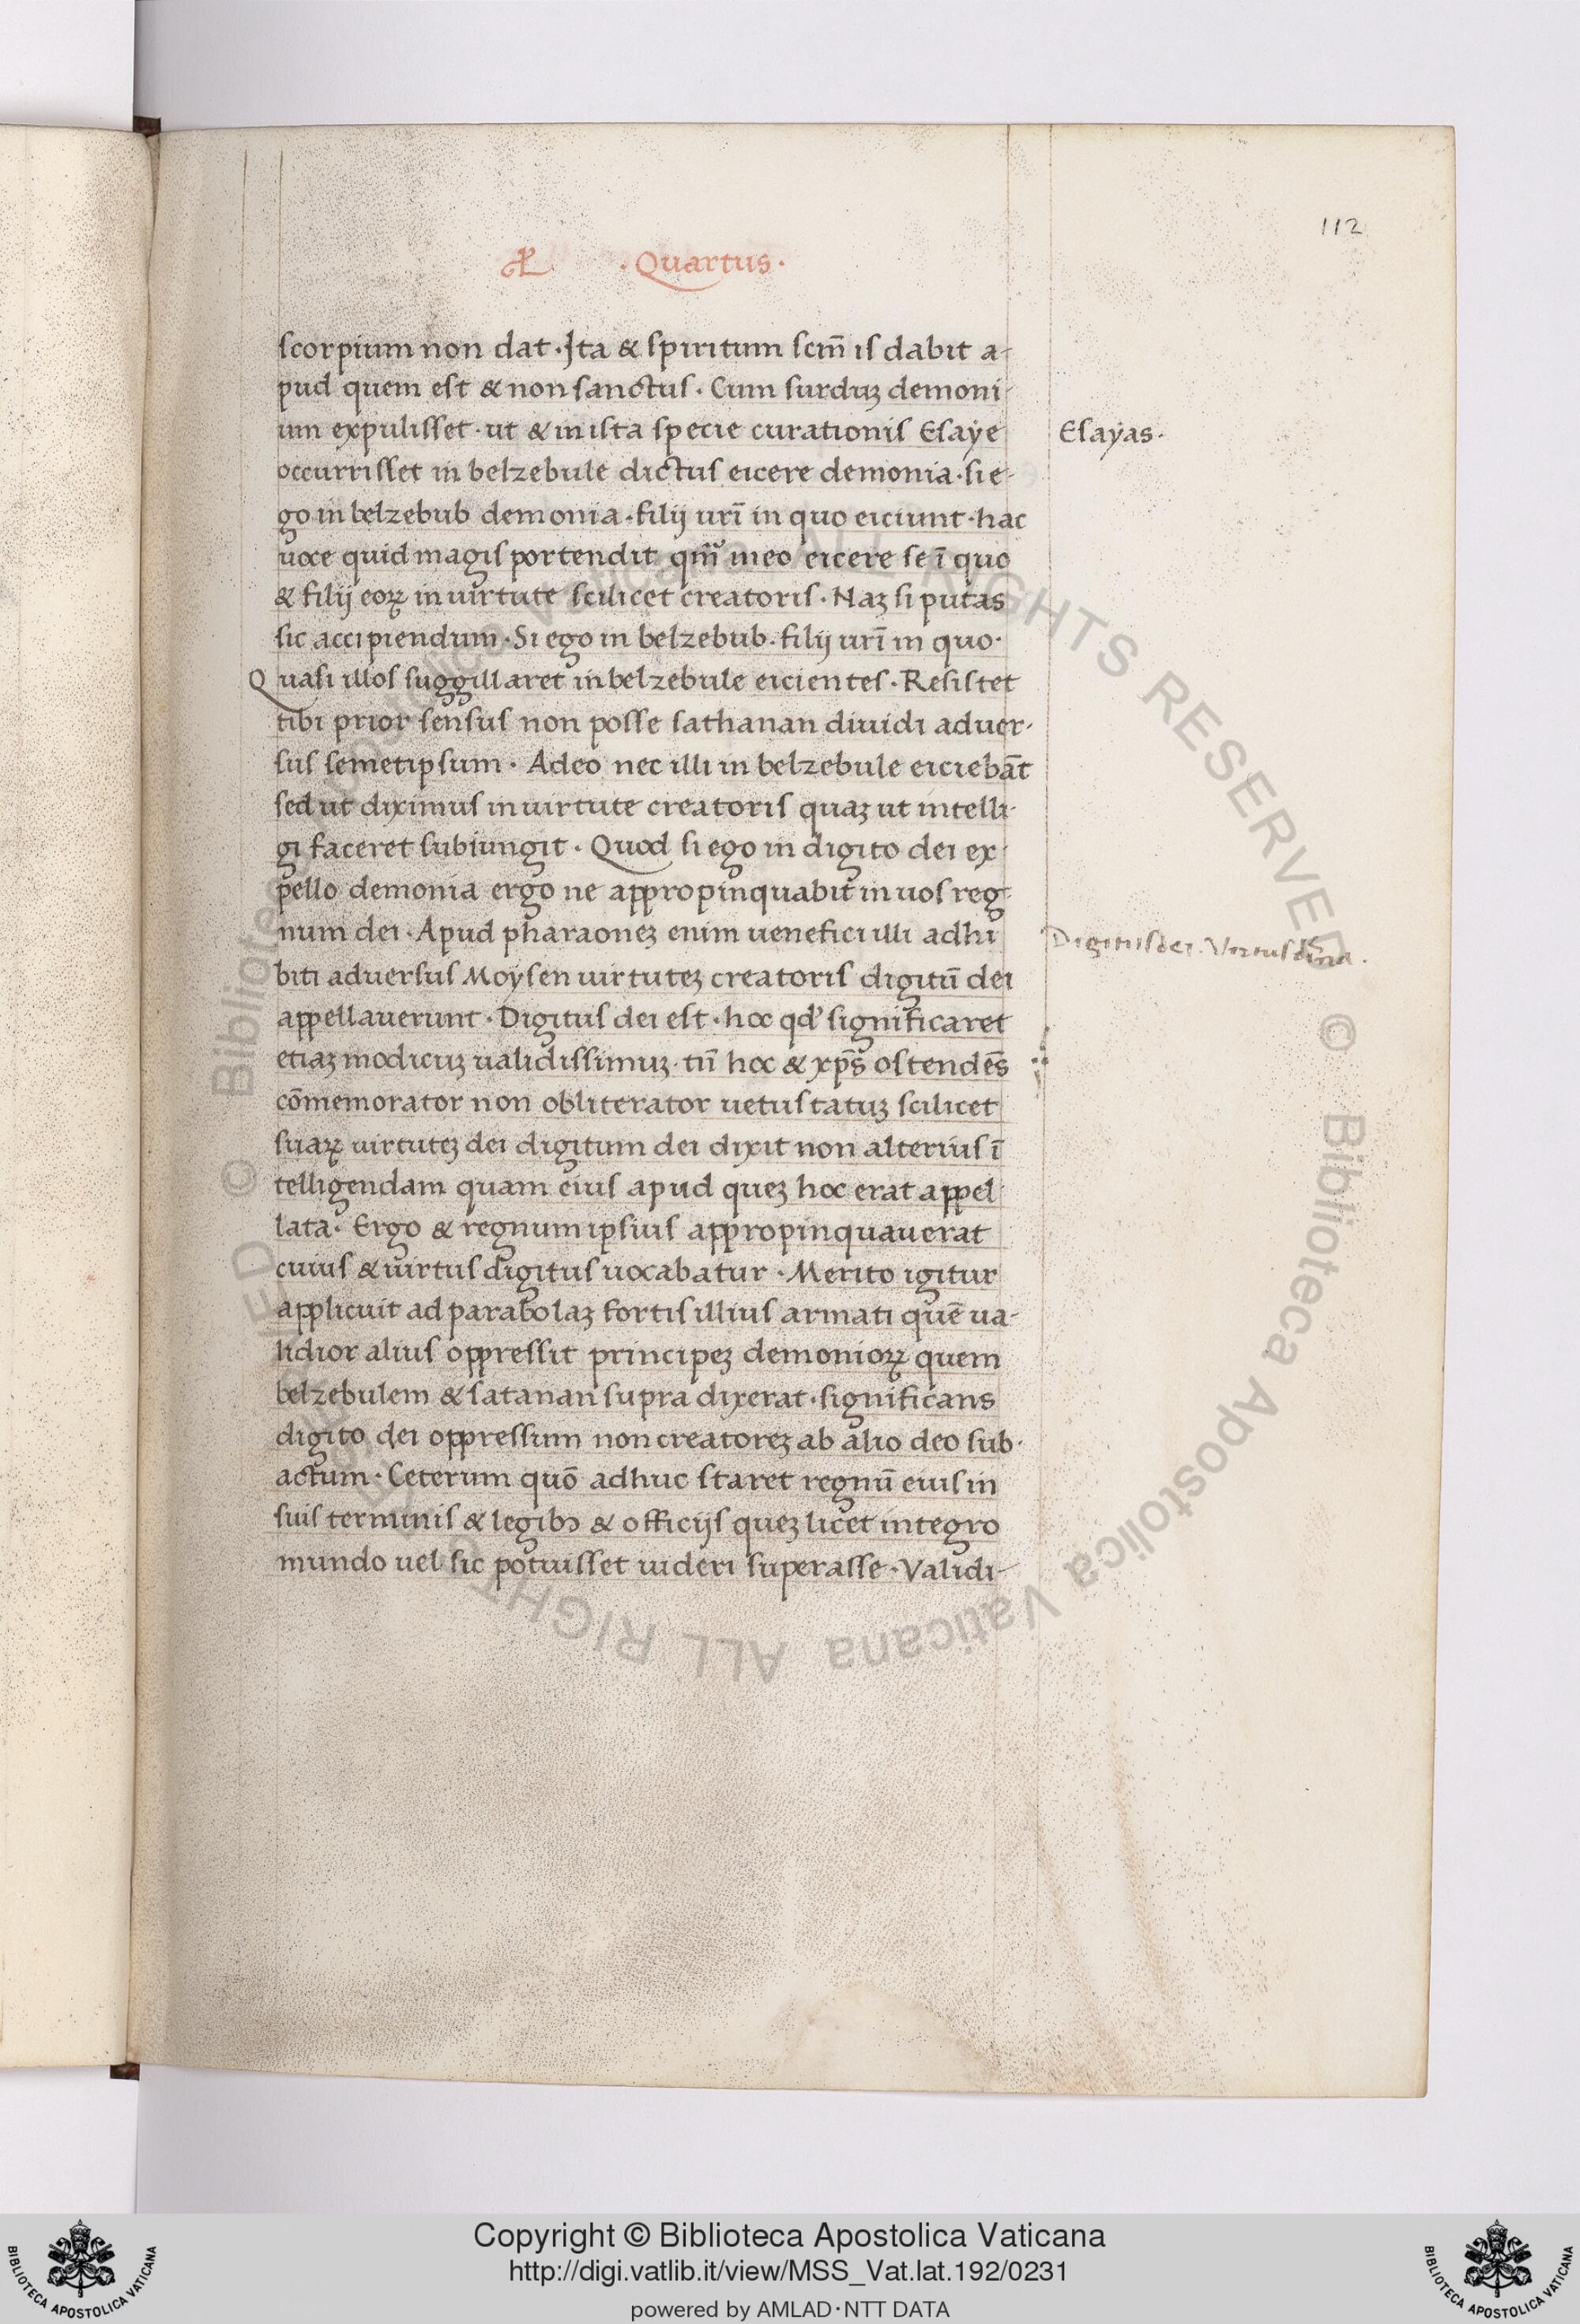 112
· Quartus ·
scorpium non dat · Ita & spiritum scm̄ is dabit a-
pud quem est & non sanctus · Cum surduꝫ demoni-
um expulisset · ut & in ista specie curationis Esaye
Esayas ·
occurrisset in belzebule dictus eicere demonia · si e-
go in belzebub demonia · filij urī in quo eiciunt · hac
uoce quid magis portendit qm̄ meo eicere se ī quo
& filij eoꝝ in uirtute scilicet creatoris · Naꝫ si putas
sic accipiendum · Si ego in belzebub · filij urī in quo ·
Quasi illos suggillaret in belzebule eicientes · Resistet
tibi prior sensus non posse sathanan diuidi aduer-
sus semetipsum · Adeo nec illi in belzebule eiciebāt
sed ut diximus in uirtute creatoris quaꝫ ut intelli-
gi faceret subiungit · Quod si ego in digito dei ex-
pello demonia ergo ne appropinquabit in uos reg-
num dei · Apud pharaoneꝫ enim uenefici illi adhi
Digitus dei · Virtus
biti aduersus Moysen uirtuteꝫ creatoris digitū dei
appellauerunt · Digitus dei est · hoc qd' significaret
etiaꝫ modicuꝫ ualidissimuꝫ · tn̄ hoc & xp̄s ostendēs
cōmemorator non obliterator uetustatuꝫ scilicet
suaꝝ uirtuteꝫ dei digitum dei dixit non alterius ī
telligendam quam eius apud queꝫ hoc erat appel-
lata · Ergo & regnum ipsius appropinquauerat
cuius & uirtus digitus uocabatur · Merito igitur
applicuit ad parabolaꝫ fortis illius armati quē ua-
lidior alius oppressit principeꝫ demonioꝝ quem
belzebulem & satanan supra dixerat · significans
digito dei oppressum non creatoreꝫ ab alio deo sub-
actum · Ceterum quō adhuc staret regnū eius in
suis terminis & legibꝫ & officijs queꝫ licet integro
mundo uel sic potuisset uideri superasse · Validi-
Copyright © Biblioteca Apostolica Vaticana
http://digi.vatlib.it/view/MSS_Vat.lat.192/0231
powered by AMLAD·NTT DATA
BIBLIOTECA APOSTOLICA VATICANA
BIBLIOTECA APOSTOLICA VATICANA
© Biblioteca Apostolica Vaticana ALL RIGHTS RESERVED
© Biblioteca Apostolica Vaticana ALL RIGHTS RESERVED